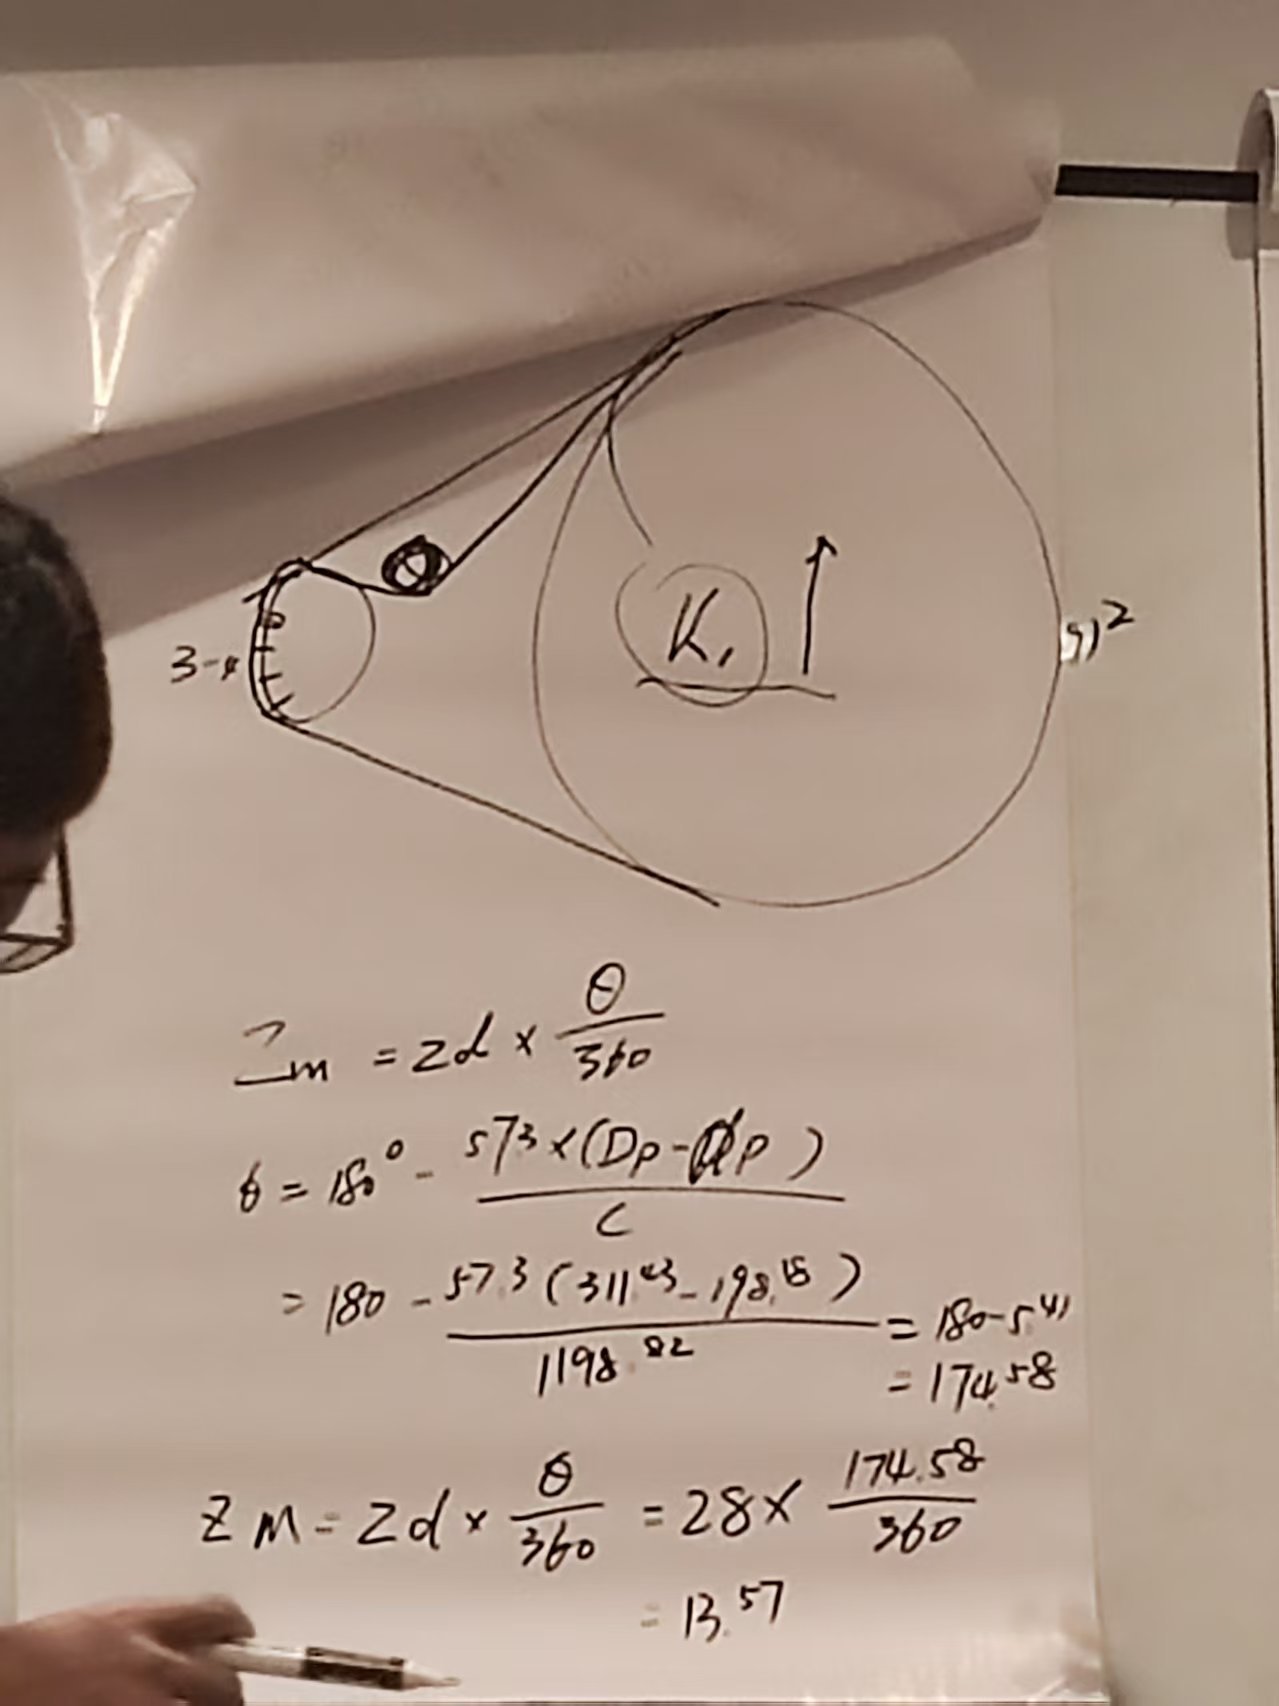 K₁
3-4
Zm = Zd × θ/360
θ = 180° - 57.3 × (Dp - dp)/C
= 180 - 57.3 (311.43 - 198.18)/1198.82 = 180 - 5.41
= 174.58
ZM = Zd × θ/360 = 28 × 174.58/360
= 13.57